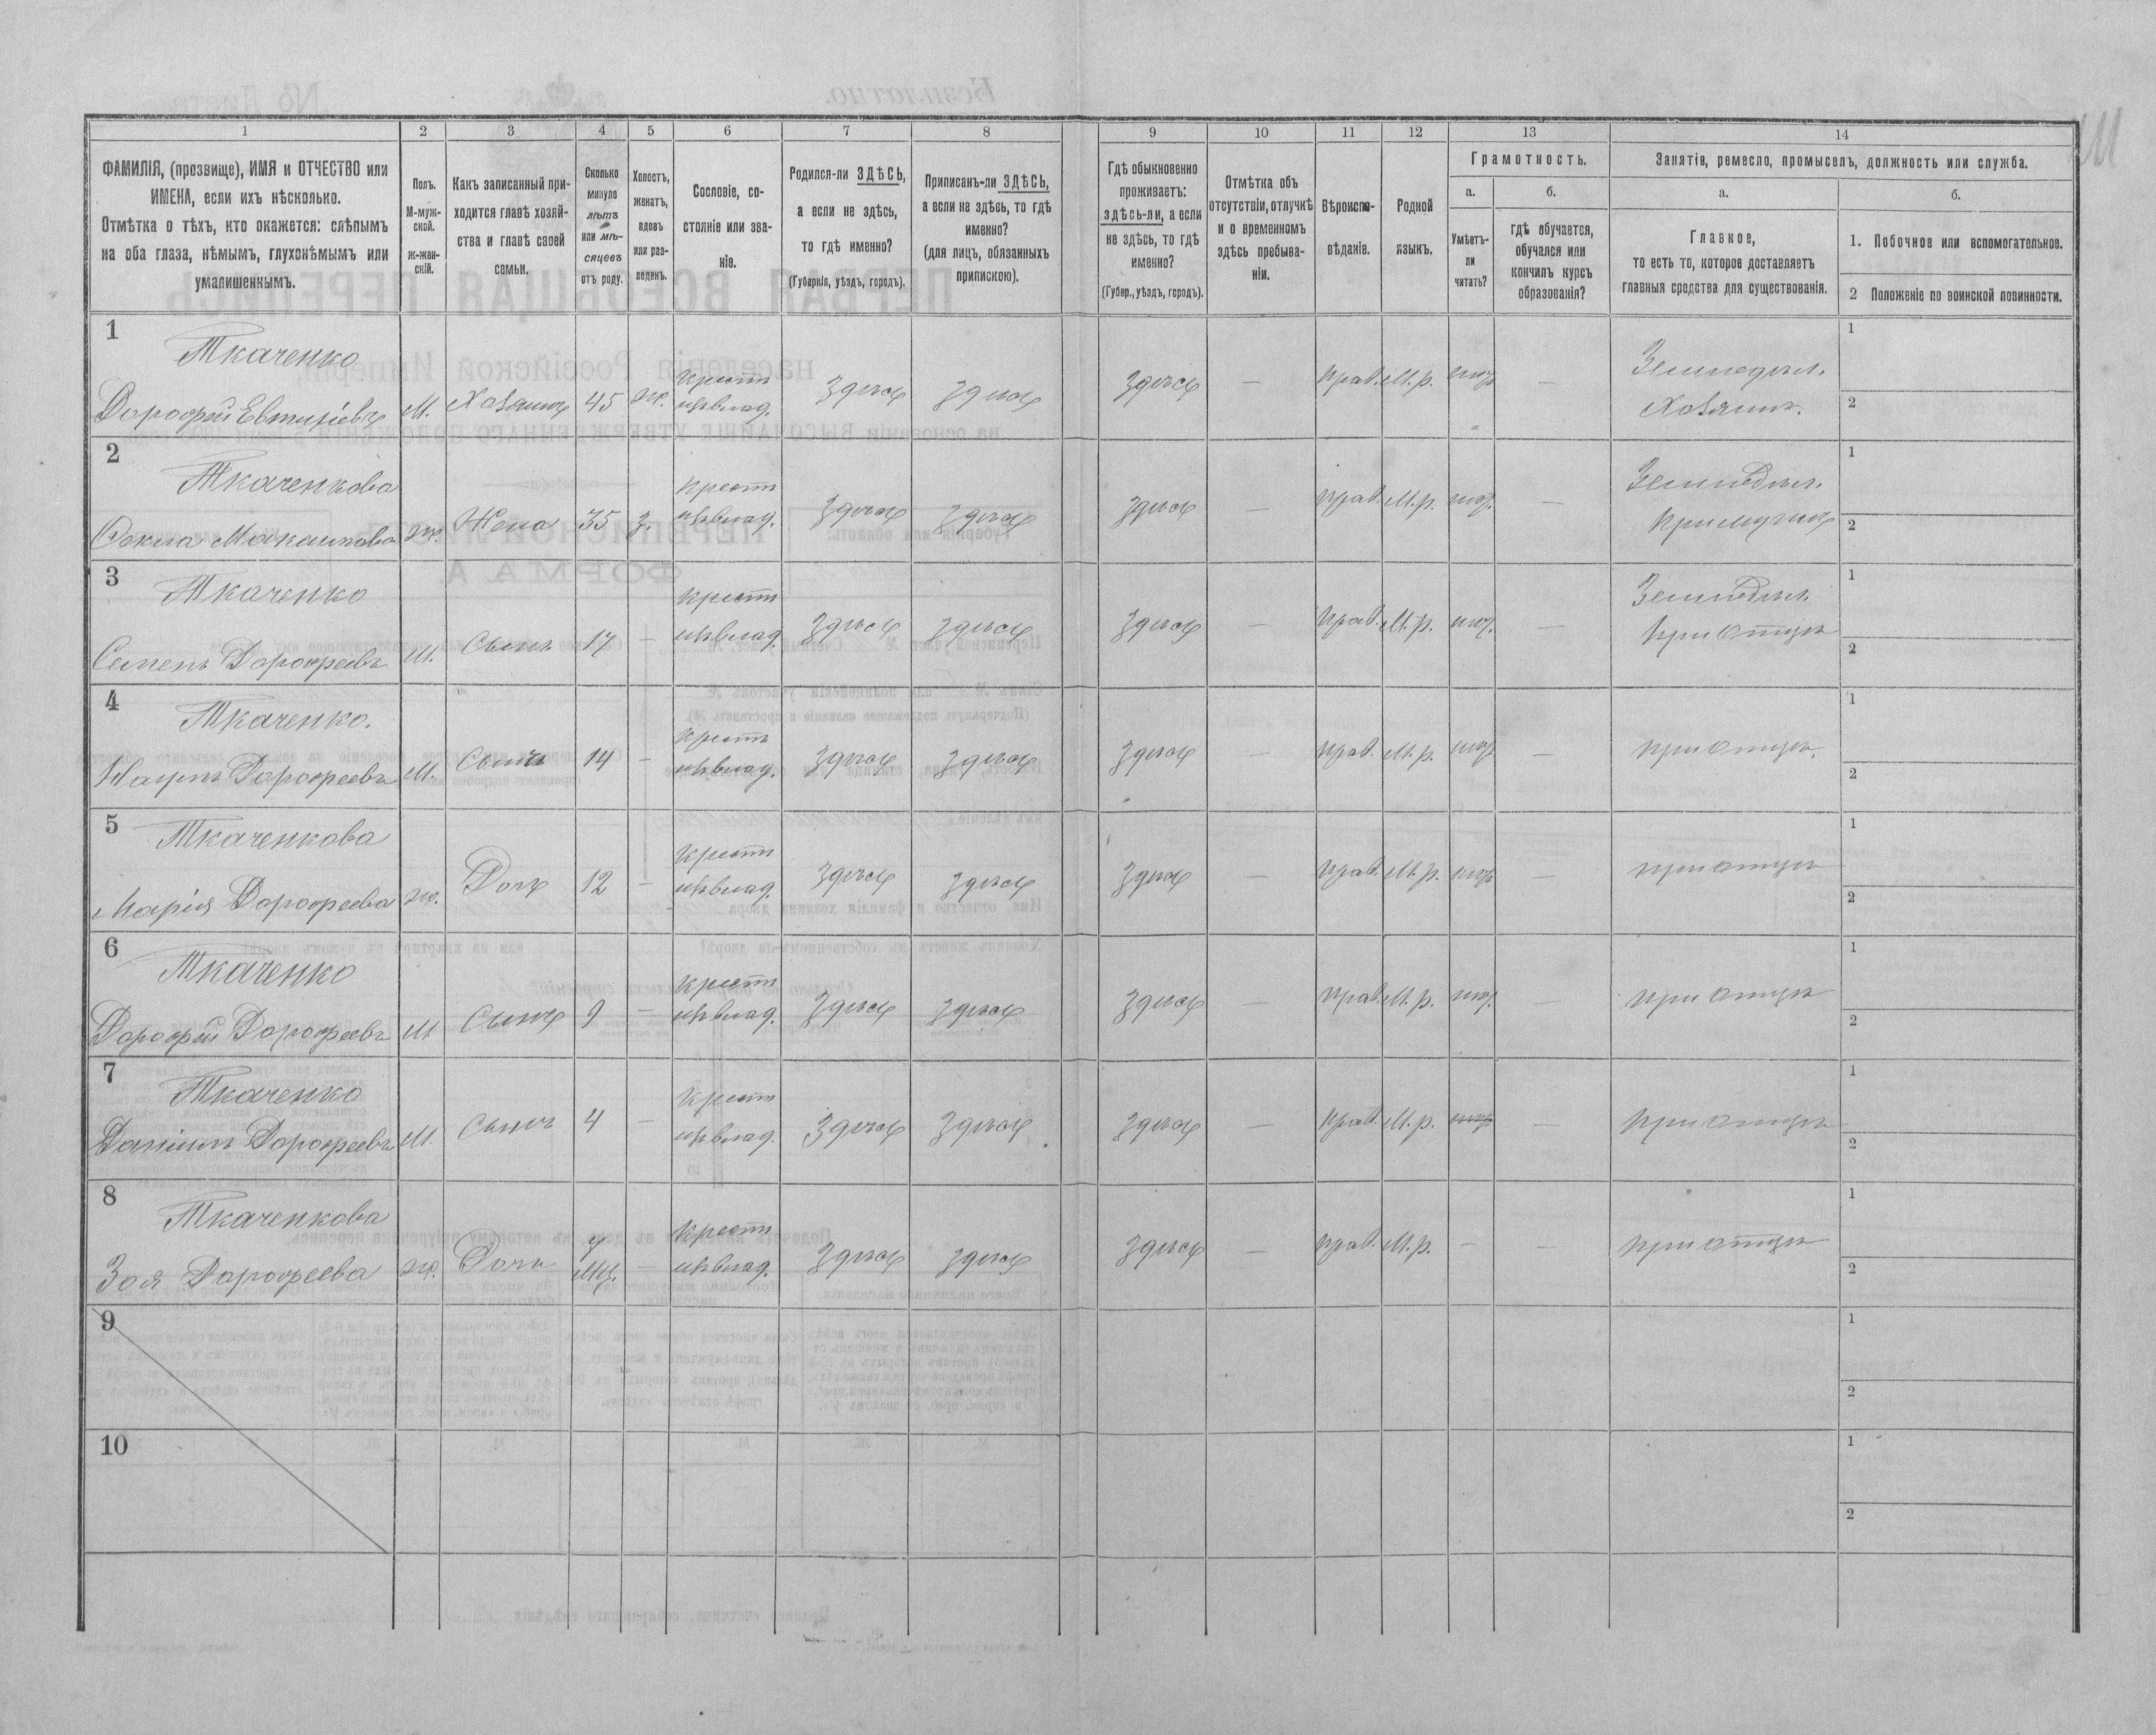 1 2 3 4 5 6 7 8 9 10 11 12 13 14
ФАМИЛІЯ, (прозвище), ИМЯ и ОТЧЕСТВО или
ИМЕНА, если ихъ нѣсколько.
Отмѣтка о тѣхъ, кто окажется: слѣпымъ
на оба глаза, нѣмымъ, глухонѣмымъ или
умалишеннымъ.
Полъ.
М-муж-
ской.
ж-жен-
скій.
Какъ записанный при-
ходится главѣ хозяй-
ства и главѣ своей
семьи.
Сколько
минуло
лѣтъ
или мѣ-
сяцевъ
отъ роду.
Холостъ,
женатъ,
вдовъ
или раз-
веденъ.
Сословіе, со-
стояніе или зва-
ніе.
Родился-ли ЗДѢСЬ,
а если не здѣсь,
то гдѣ именно?
(Губернія, уѣздъ, городъ).
Приписанъ-ли ЗДѢСЬ,
а если не здѣсь, то гдѣ
именно?
(для лицъ, обязанныхъ
припискою).
Гдѣ обыкновенно
проживаетъ:
здѣсь-ли, а если
не здѣсь, то гдѣ
именно?
(Губер., уѣздъ, городъ).
Отмѣтка объ
отсутствіи, отлучкѣ
и о временномъ
здѣсь пребыва-
ніи.
Вѣроиспо-
вѣданіе.
Родной
языкъ.
Грамотность.
а. б.
Умѣетъ-
ли
читать?
гдѣ обучается,
обучался или
кончилъ курсъ
образованія?
Занятіе, ремесло, промыселъ, должность или служба.
а. б.
Главное,
то есть то, которое доставляетъ
главныя средства для существованія.
1. Побочное или вспомогательное.
2 Положеніе по воинской повинности.
1 Ткаченко
Дорофей Евтихіевъ М. Хозяинъ 45 ж. Крест здѣсь здѣсь здѣсь — прав. М.р. —
Земледѣл.
Хозяинъ.
1
2
2 Ткаченкова
Макашкова ж. Жена 35 з. Крест здѣсь здѣсь здѣсь — прав. М.р. —
Земледѣл.
при мужѣ
1
2
3 Ткаченко
Семенъ Дорофеевъ М. Сынъ 17 — Крест здѣсь здѣсь здѣсь — прав. М.р. —
Земледѣл.
при отцѣ
1
2
4 Ткаченко.
Наумъ Дорофеевъ М. Сынъ 14 — Крест здѣсь здѣсь здѣсь — прав. М.р. — при отцѣ.
1
2
5 Ткаченкова
Марія Дорофеева ж. Дочь 12 — Крест здѣсь здѣсь здѣсь — прав. М.р. — при отцѣ
1
2
6 Ткаченко
Дорофей Дорофеевъ М. Сынъ 9 — Крест здѣсь здѣсь здѣсь — прав. М.р. — при отцѣ
1
2
7 Ткаченко
Даніилъ Дорофеевъ М. Сынъ 4 — Крест здѣсь здѣсь здѣсь — прав. М.р. — при отцѣ
1
2
8 Ткаченкова
Зоя Дорофеева ж. Дочь — Крест здѣсь здѣсь здѣсь — прав. М.р. — — при отцѣ
1
2
9
1
2
10
1
2